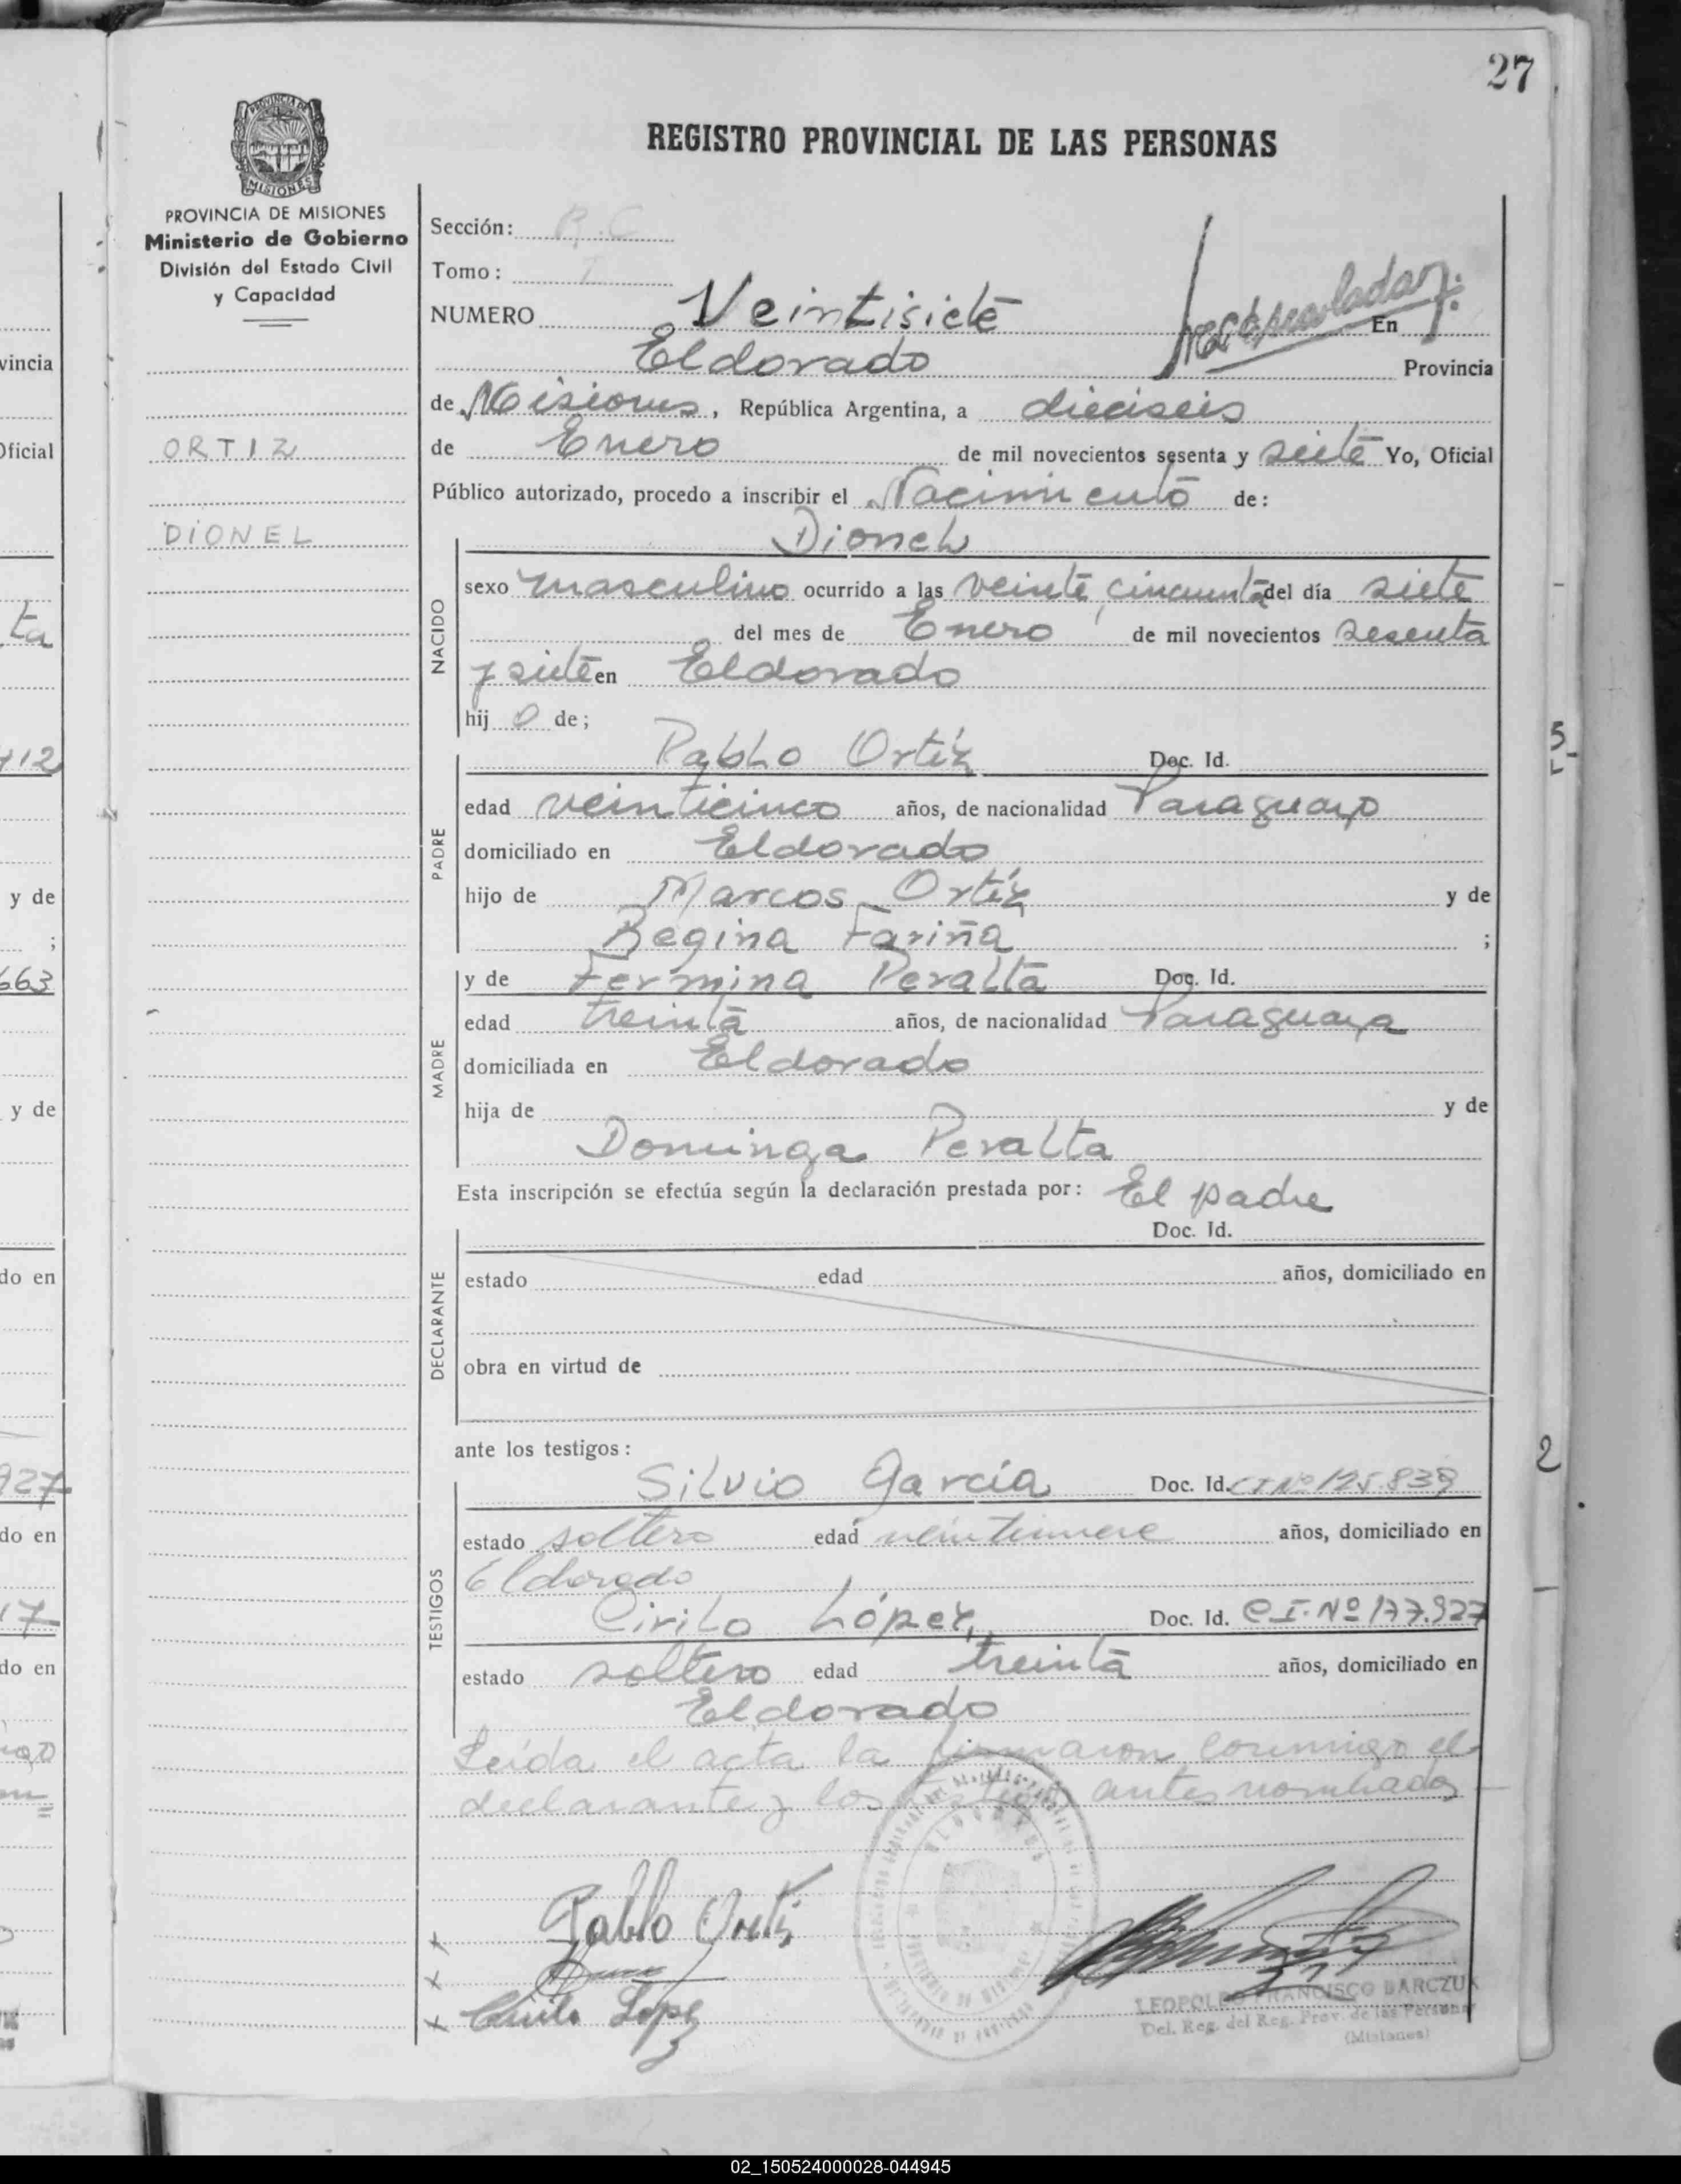 27
REGISTRO PROVINCIAL DE LAS PERSONAS
PROVINCIA DE MISIONES
Ministerio de Gobierno
División del Estado Civil
y Capacidad
ORTIZ
DIONEL
Sección: R.C
Tomo: I
NUMERO Veintisiete En
Eldorado Provincia
de Misiones, República Argentina, a dieciseis
de Enero de mil novecientos sesenta y siete Yo, Oficial
Público autorizado, procedo a inscribir el Nacimiento de:
Dionel
NACIDO
sexo masculino ocurrido a las veinte, cincuenta del día siete
del mes de Enero de mil novecientos sesenta
y siete en Eldorado
hijo de;
PADRE
Pablo Ortíz Doc. Id.
edad veinticinco años, de nacionalidad Paraguayo
domiciliado en Eldorado
hijo de Marcos Ortíz y de
Regina Fariña ;
MADRE
y de Fermina Peralta Doc. Id.
edad treinta años, de nacionalidad Paraguaya
domiciliada en Eldorado
hija de y de
Dominga Peralta
Esta inscripción se efectúa según la declaración prestada por: El padre
DECLARANTE
Doc. Id.
estado edad años, domiciliado en
obra en virtud de
ante los testigos:
TESTIGOS
Silvio García Doc. Id. CI Nº 125.839
estado soltero edad veintinueve años, domiciliado en
Eldorado
Cirilo López, Doc. Id. C.I. Nº 177.927
estado soltero edad treinta años, domiciliado en
Eldorado
Leída el acta la firmaron conmigo el
declarante y los testigos antes nombrados
Pablo Ortiz
Cirilo Lopez
LEOPOLDO FRANCISCO BARCZUK
Del. Reg. del Reg. Prov. de las Personas
(Misiones)
vincia
Oficial
ta
412
y de
;
663
y de
do en
927
do en
17
do en
5
2
02_150524000028-044945